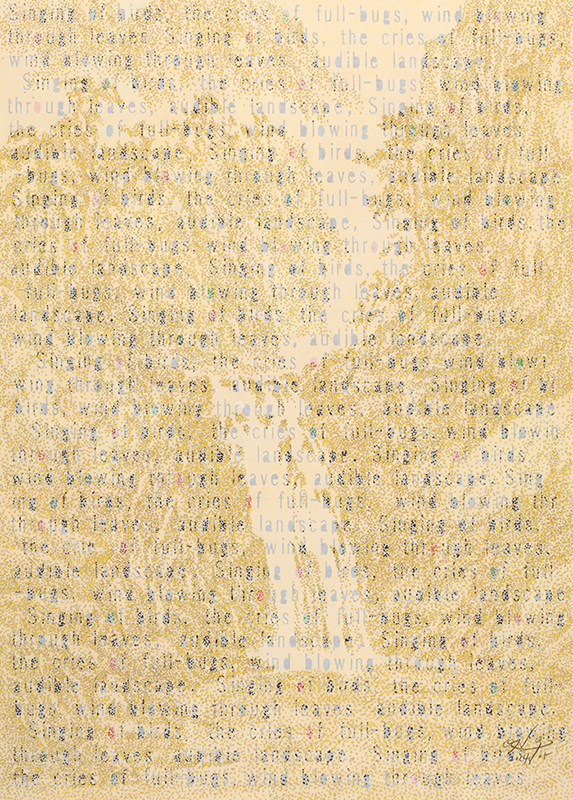 Singing of birds, the cries of full-bugs, wind blowing
through leaves Singing of birds, the cries of full-bugs,
wind blowing through leaves, audible landscape,
Singing of birds, the cries of full-bugs, wind blowing
through leaves, audible landscape, Singing of birds,
the cries of full-bugs, wind blowing through leaves
audible landscape, Singing of birds, the cries of full
-bugs, wind blowing through leaves, audible landscape
Singing of birds, the cries of full-bugs, wind blowing
through leaves, audible landscape, Singing of birds the
cries of full-bugs, wind blowing through leaves,
audible landscape, Singing of birds, the cries of full
full-bugs, wind blowing through leaves, audible
landscape. Singing of birds, the cries of full-bugs,
wind blowing through leaves, audible landscape,
Singing of birds, the cries of full-bugs wind blowi
wing through leaves, audible landscape, Singing of bi
birds, wind blowing through leaves, audible landscape
Singing of birds, the cries of full-bugs, wind blowin
through leaves, audible landscape, Singing of birds,
wind blowing through leaves, audible landscape, Sing
ing of birds, the cries of full-bugs, wind blowing thr
through leaves, audible landscape, Singing of birds,
the cries of full-bugs, wind blowing through leaves,
audible landscape, Singing of birds, the cries of full
-bugs, wind blowing through leaves, audible landscape
Singing of birds, the cries of full-bugs, wind blowing
through leaves, audible landscape, Singing of birds,
the cries of full-bugs, wind blowing through leaves,
audible landscape. Singing of birds, the cries of full-
bugs, wind blowing through leaves audible landscape.
Singing of birds, the cries of full-bugs, wind blowing
through leaves, audible landscape, Singing of bi
the cries of full-bugs, wind blowing through leaves